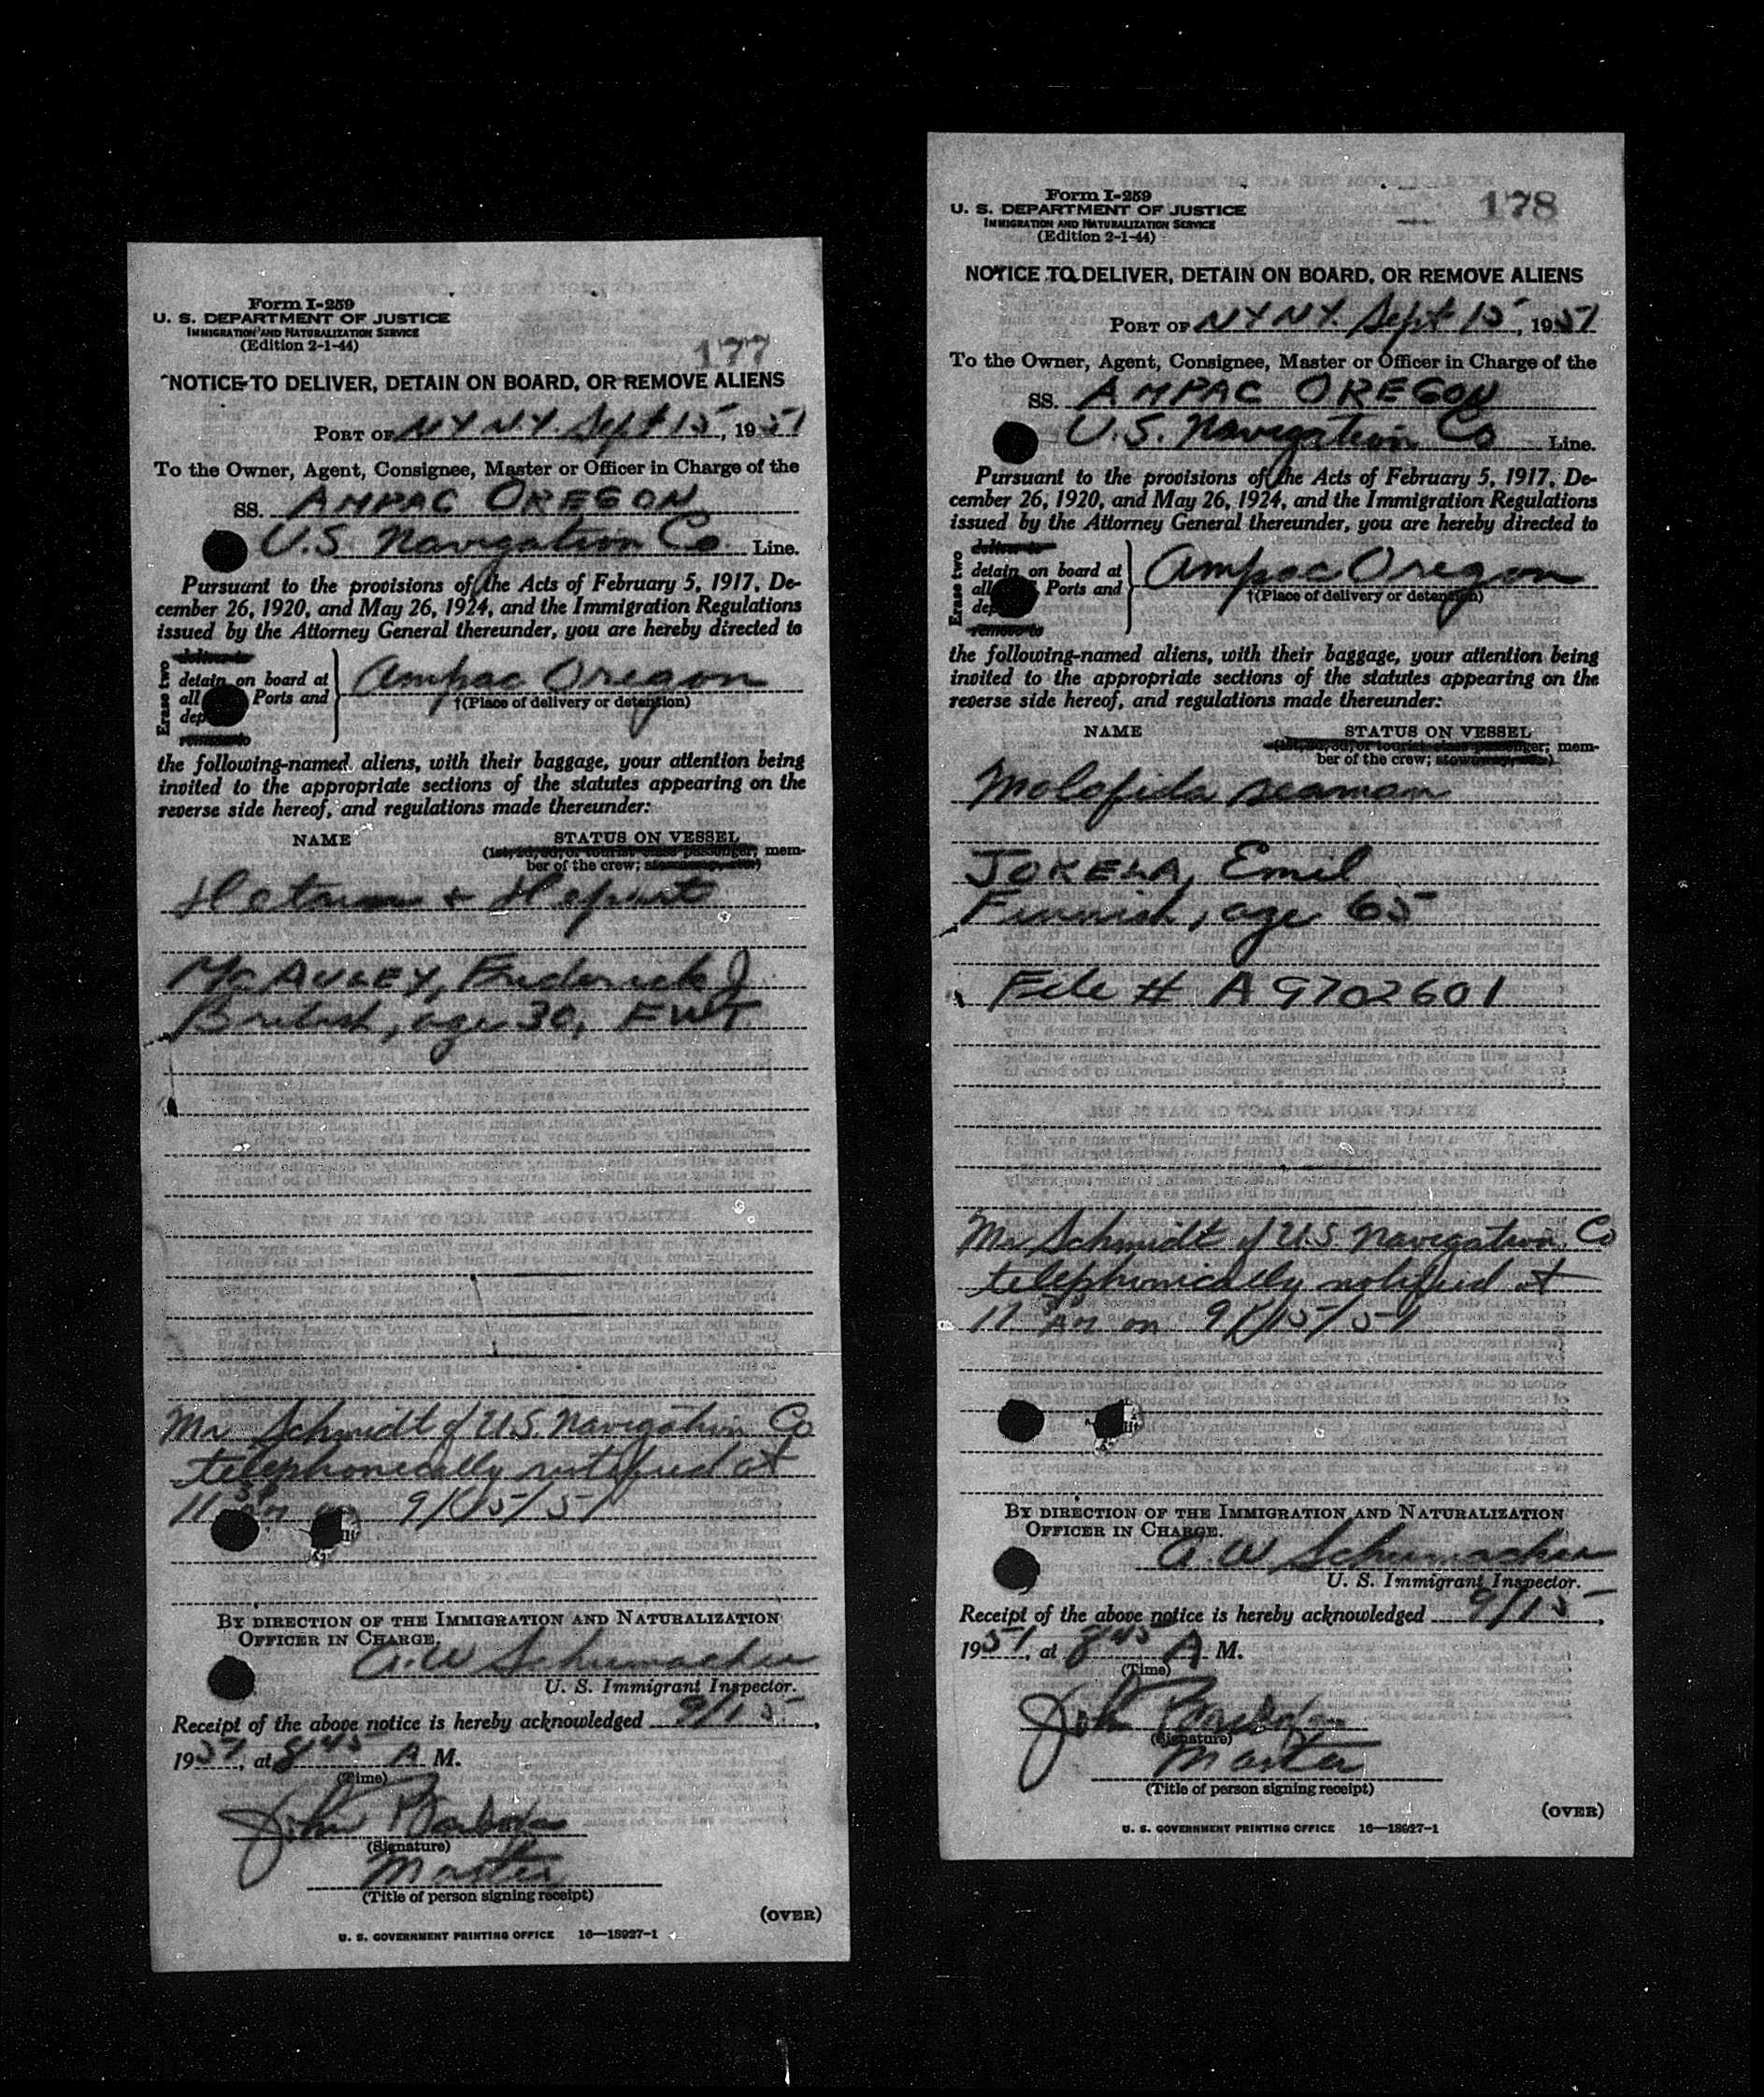 Form I-259
U. S. DEPARTMENT OF JUSTICE
IMMIGRATION AND NATURALIZATION SERVICE
(Edition 2-1-44)
177
NOTICE TO DELIVER, DETAIN ON BOARD, OR REMOVE ALIENS
PORT OF NY NY. Sept 15, 1951
To the Owner, Agent, Consignee, Master or Officer in Charge of the
SS. AMPAC OREGON
U.S Navigation Co Line.
Pursuant to the provisions of the Acts of February 5, 1917, De-
cember 26, 1920, and May 26, 1924, and the Immigration Regulations
issued by the Attorney General thereunder, you are hereby directed to
Erase two
deliver to
detain on board at
all Ports and
dep
remove to
Ampac Oregon
†(Place of delivery or detention)
the following-named aliens, with their baggage, your attention being
invited to the appropriate sections of the statutes appearing on the
reverse side hereof, and regulations made thereunder:
NAME
STATUS ON VESSEL
(1st, 2d, 3d, or tourist class passenger; mem-
ber of the crew;
+
McAULEY, Frederick J
British, age 30, FWT
Mr Schmidt of U.S. Navigation Co
telephonically notified at
11 AM on 9/15/51
BY DIRECTION OF THE IMMIGRATION AND NATURALIZATION
OFFICER IN CHARGE.
A.W Schumacher
U. S. Immigrant Inspector.
Receipt of the above notice is hereby acknowledged 9/15,
1951, at 845 A M.
(Time)
John
(Signature)
Master
(Title of person signing receipt)
(OVER)
U. S. GOVERNMENT PRINTING OFFICE 16—18927-1
Form I-259
U. S. DEPARTMENT OF JUSTICE
IMMIGRATION AND NATURALIZATION SERVICE
(Edition 2-1-44)
178
NOTICE TO DELIVER, DETAIN ON BOARD, OR REMOVE ALIENS
PORT OF NY NY. Sept 15, 1951
To the Owner, Agent, Consignee, Master or Officer in Charge of the
SS. AMPAC OREGON
U.S. Navigation Co Line.
Pursuant to the provisions of the Acts of February 5, 1917, De-
cember 26, 1920, and May 26, 1924, and the Immigration Regulations
issued by the Attorney General thereunder, you are hereby directed to
Erase two
deliver to
detain on board at
all Ports and
dep
remove to
Ampac Oregon
†(Place of delivery or detention)
the following-named aliens, with their baggage, your attention being
invited to the appropriate sections of the statutes appearing on the
reverse side hereof, and regulations made thereunder:
NAME
STATUS ON VESSEL
(1st, 2d, 3d, or tourist class passenger; mem-
ber of the crew;
Malafida seaman
JOKELA, Emil
Finnish, age 65
File # A 9702601
Mr Schmidt of U.S. Navigation Co
telephonically notified at
11 AM on 9/15/51
BY DIRECTION OF THE IMMIGRATION AND NATURALIZATION
OFFICER IN CHARGE.
A.W Schumacher
U. S. Immigrant Inspector.
Receipt of the above notice is hereby acknowledged 9/15,
1951, at 845 A M.
(Time)
John
(Signature)
Master
(Title of person signing receipt)
(OVER)
U. S. GOVERNMENT PRINTING OFFICE 16—18927-1